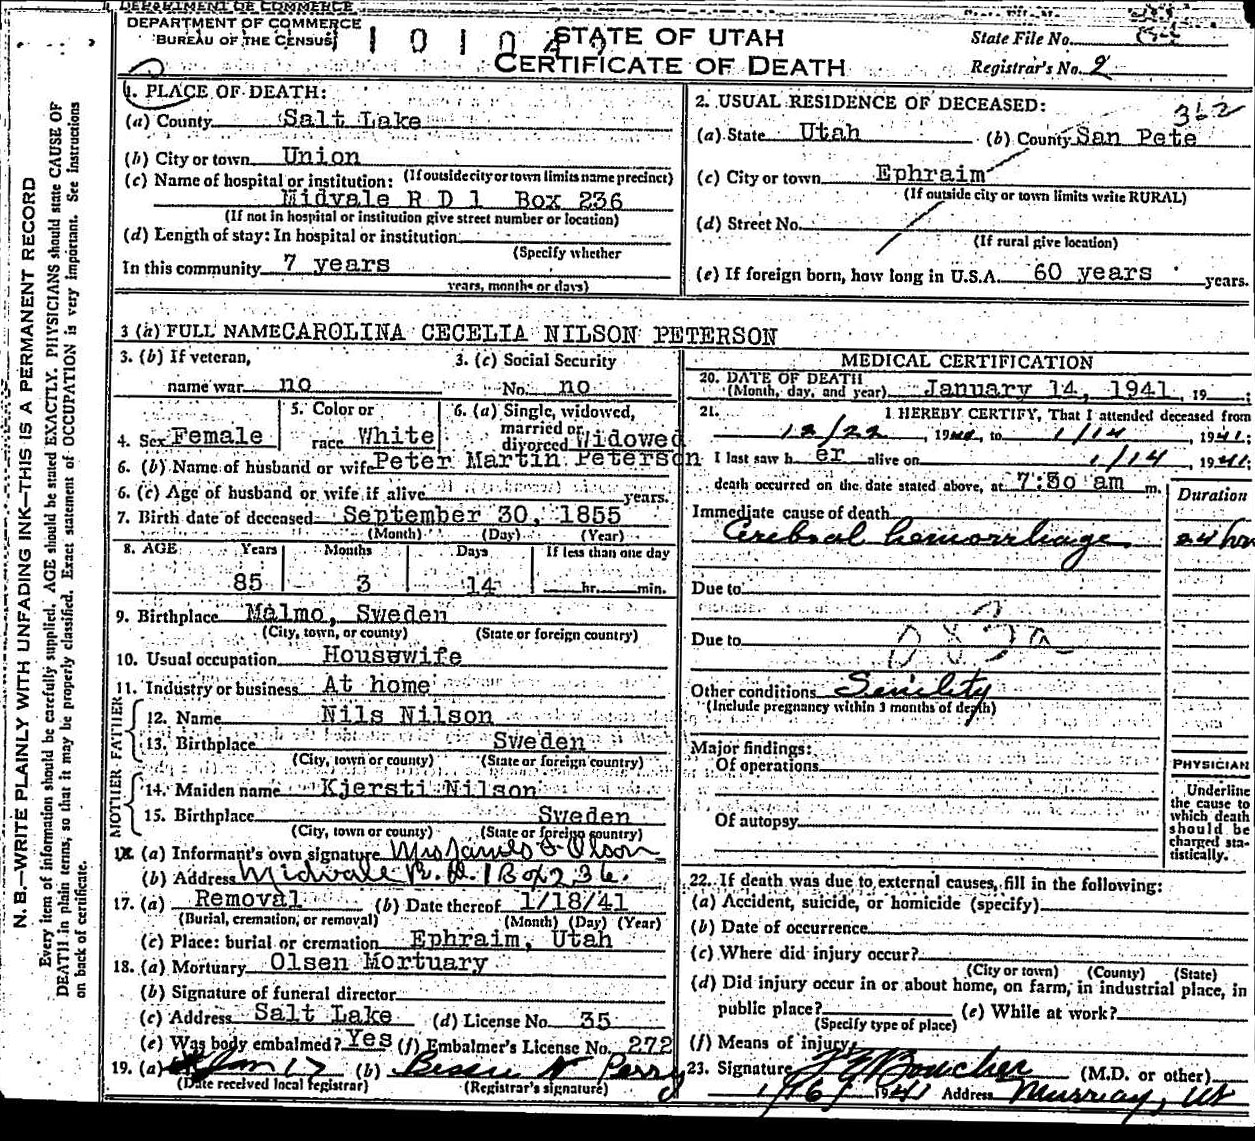 DEPARTMENT OF COMMERCE
DEPARTMENT OF COMMERCE
BUREAU OF THE CENSUS
STATE OF UTAH
CERTIFICATE OF DEATH
State File No.
Registrar's No. 2
N. B.—WRITE PLAINLY WITH UNFADING INK—THIS IS A PERMANENT RECORD
Every item of information should be carefully supplied. AGE should be stated EXACTLY. PHYSICIANS should state CAUSE OF
DEATH in plain terms, so that it may be properly classified. Exact statement of OCCUPATION is very important. See instructions
on back of certificate.
1. PLACE OF DEATH:
(a) County Salt Lake
(b) City or town Union
(If outside city or town limits name precinct)
(c) Name of hospital or institution:
Midvale R D 1 Box 236
(If not in hospital or institution give street number or location)
(d) Length of stay: In hospital or institution
(Specify whether
In this community 7 years
years, months or days)
2. USUAL RESIDENCE OF DECEASED:
362
(a) State Utah (b) County San Pete
(c) City or town Ephraim
(If outside city or town limits write RURAL)
(d) Street No.
(If rural give location)
(e) If foreign born, how long in U.S.A. 60 years years.
3 (a) FULL NAME CAROLINA CECELIA NILSON PETERSON
3. (b) If veteran, 3. (c) Social Security
name war no No. no
4. Sex Female 5. Color or race White 6. (a) Single, widowed, married or divorced Widowed
6. (b) Name of husband or wife Peter Martin Peterson
6. (c) Age of husband or wife if alive years.
7. Birth date of deceased September 30, 1855
(Month) (Day) (Year)
8. AGE Years Months Days If less than one day
85 3 14 hr. min.
9. Birthplace Malmo, Sweden
(City, town, or county) (State or foreign country)
10. Usual occupation Housewife
11. Industry or business At home
FATHER
12. Name Nils Nilson
13. Birthplace Sweden
(City, town or county) (State or foreign country)
MOTHER
14. Maiden name Kjersti Nilson
15. Birthplace Sweden
(City, town or county) (State or foreign country)
(a) Informant's own signature Mrs James Olson
(b) Address Midvale R. D. 1 Box 236.
17. (a) Removal (b) Date thereof 1/18/41
(Burial, cremation, or removal) (Month) (Day) (Year)
(c) Place: burial or cremation Ephraim, Utah
18. (a) Mortuary Olsen Mortuary
(b) Signature of funeral director
(c) Address Salt Lake (d) License No. 35
(e) Was body embalmed? Yes (f) Embalmer's License No. 272
19. (a) Jan 17 (b) Bessie N Perry
(Date received local registrar) (Registrar's signature)
MEDICAL CERTIFICATION
20. DATE OF DEATH
(Month, day, and year) January 14, 1941, 19 ;
21. I HEREBY CERTIFY, That I attended deceased from
12/22, 19 , to 1/14, 1941;
I last saw h er alive on 1/14, 1941;
death occurred on the date stated above, at 7:30 am m.
Duration
Immediate cause of death
Cerebral hemorrhage 24 hrs
Due to
Due to 083a
Other conditions Senility
(Include pregnancy within 3 months of death)
Major findings:
Of operations
Of autopsy
PHYSICIAN
Underline
the cause to
which death
should be
charged sta-
tistically.
22. If death was due to external causes, fill in the following:
(a) Accident, suicide, or homicide (specify)
(b) Date of occurrence
(c) Where did injury occur?
(City or town) (County) (State)
(d) Did injury occur in or about home, on farm, in industrial place, in
public place? (e) While at work?
(Specify type of place)
(f) Means of injury
23. Signature Boucher (M.D. or other)
1/16/ 1941 Address Murray, Ut